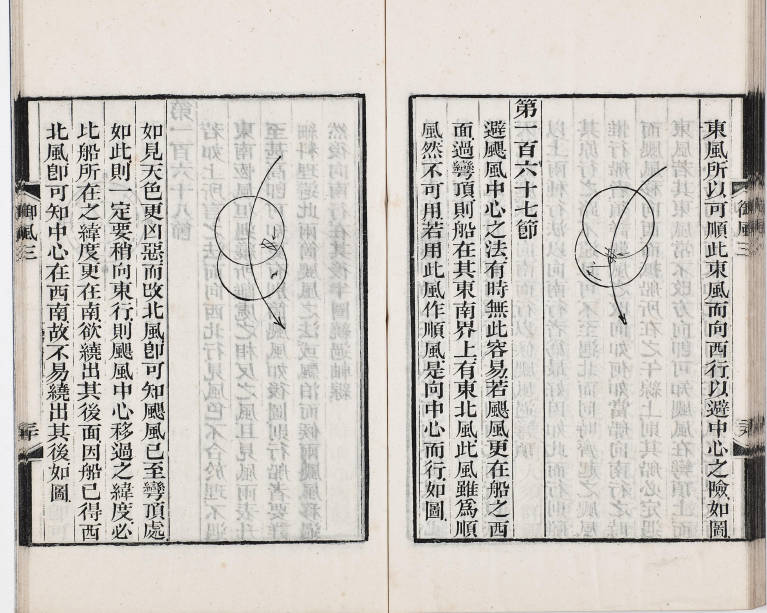 東風所以可順此東風而向西行以避中心之險如圖
第一百六十七節
避颶風中心之法有時無此容易若颶風更在船之西
面過彎頂則船在其東南界上有東北風此風雖爲順
風然不可用若用此風作順風是向中心而行如圖
御風三
如見天色更凶惡而改北風卽可知颶風已至彎頂處
如此則一定要稍向東行則颶風中心移過之緯度必
比船所在之緯度更在南欲繞出其後面因船已得西
北風卽可知中心在西南故不易繞出其後如圖
御風三